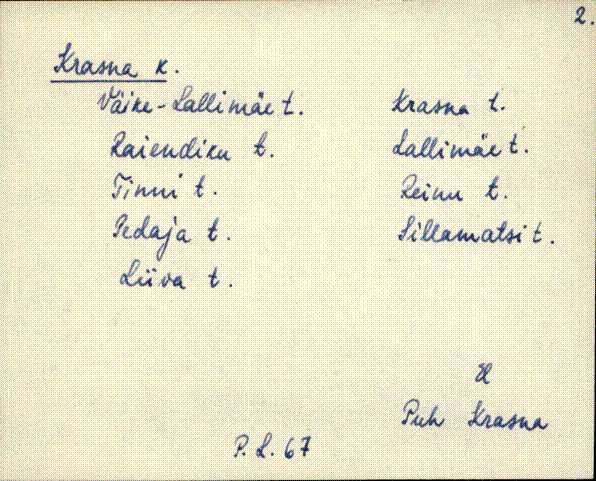 2.
Krasna k.
Väike-Lallimäe t. Krasna t.
Raiendiku t. Lallimäe t.
Tinni t. Reinu t.
Pedaja t. Sillamatsi t.
Liiva t.
Puh Krasna
P. L. 67